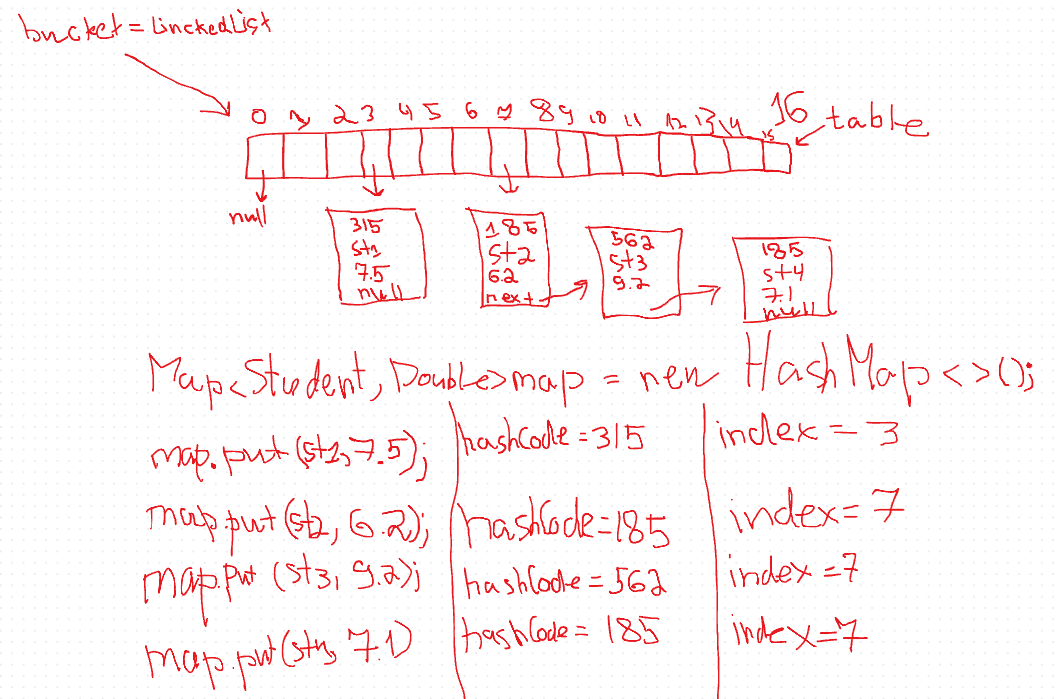 bucket = LinckedList
0 1 2 3 4 5 6 7 8 9 10 11 12 13 14 15
16
table
null
315
st1
7.5
null
185
st2
6.2
next
562
st3
9.2
185
st4
7.1
null
Map<Student, Double> map = new HashMap<>();
map.put(st1, 7.5); hashCode = 315 index = 3
map.put(st2, 6.2); hashCode = 185 index = 7
map.put (st3, 9.2); hashCode = 562 index = 7
map.put(st4, 7.1) hashCode = 185 index = 7